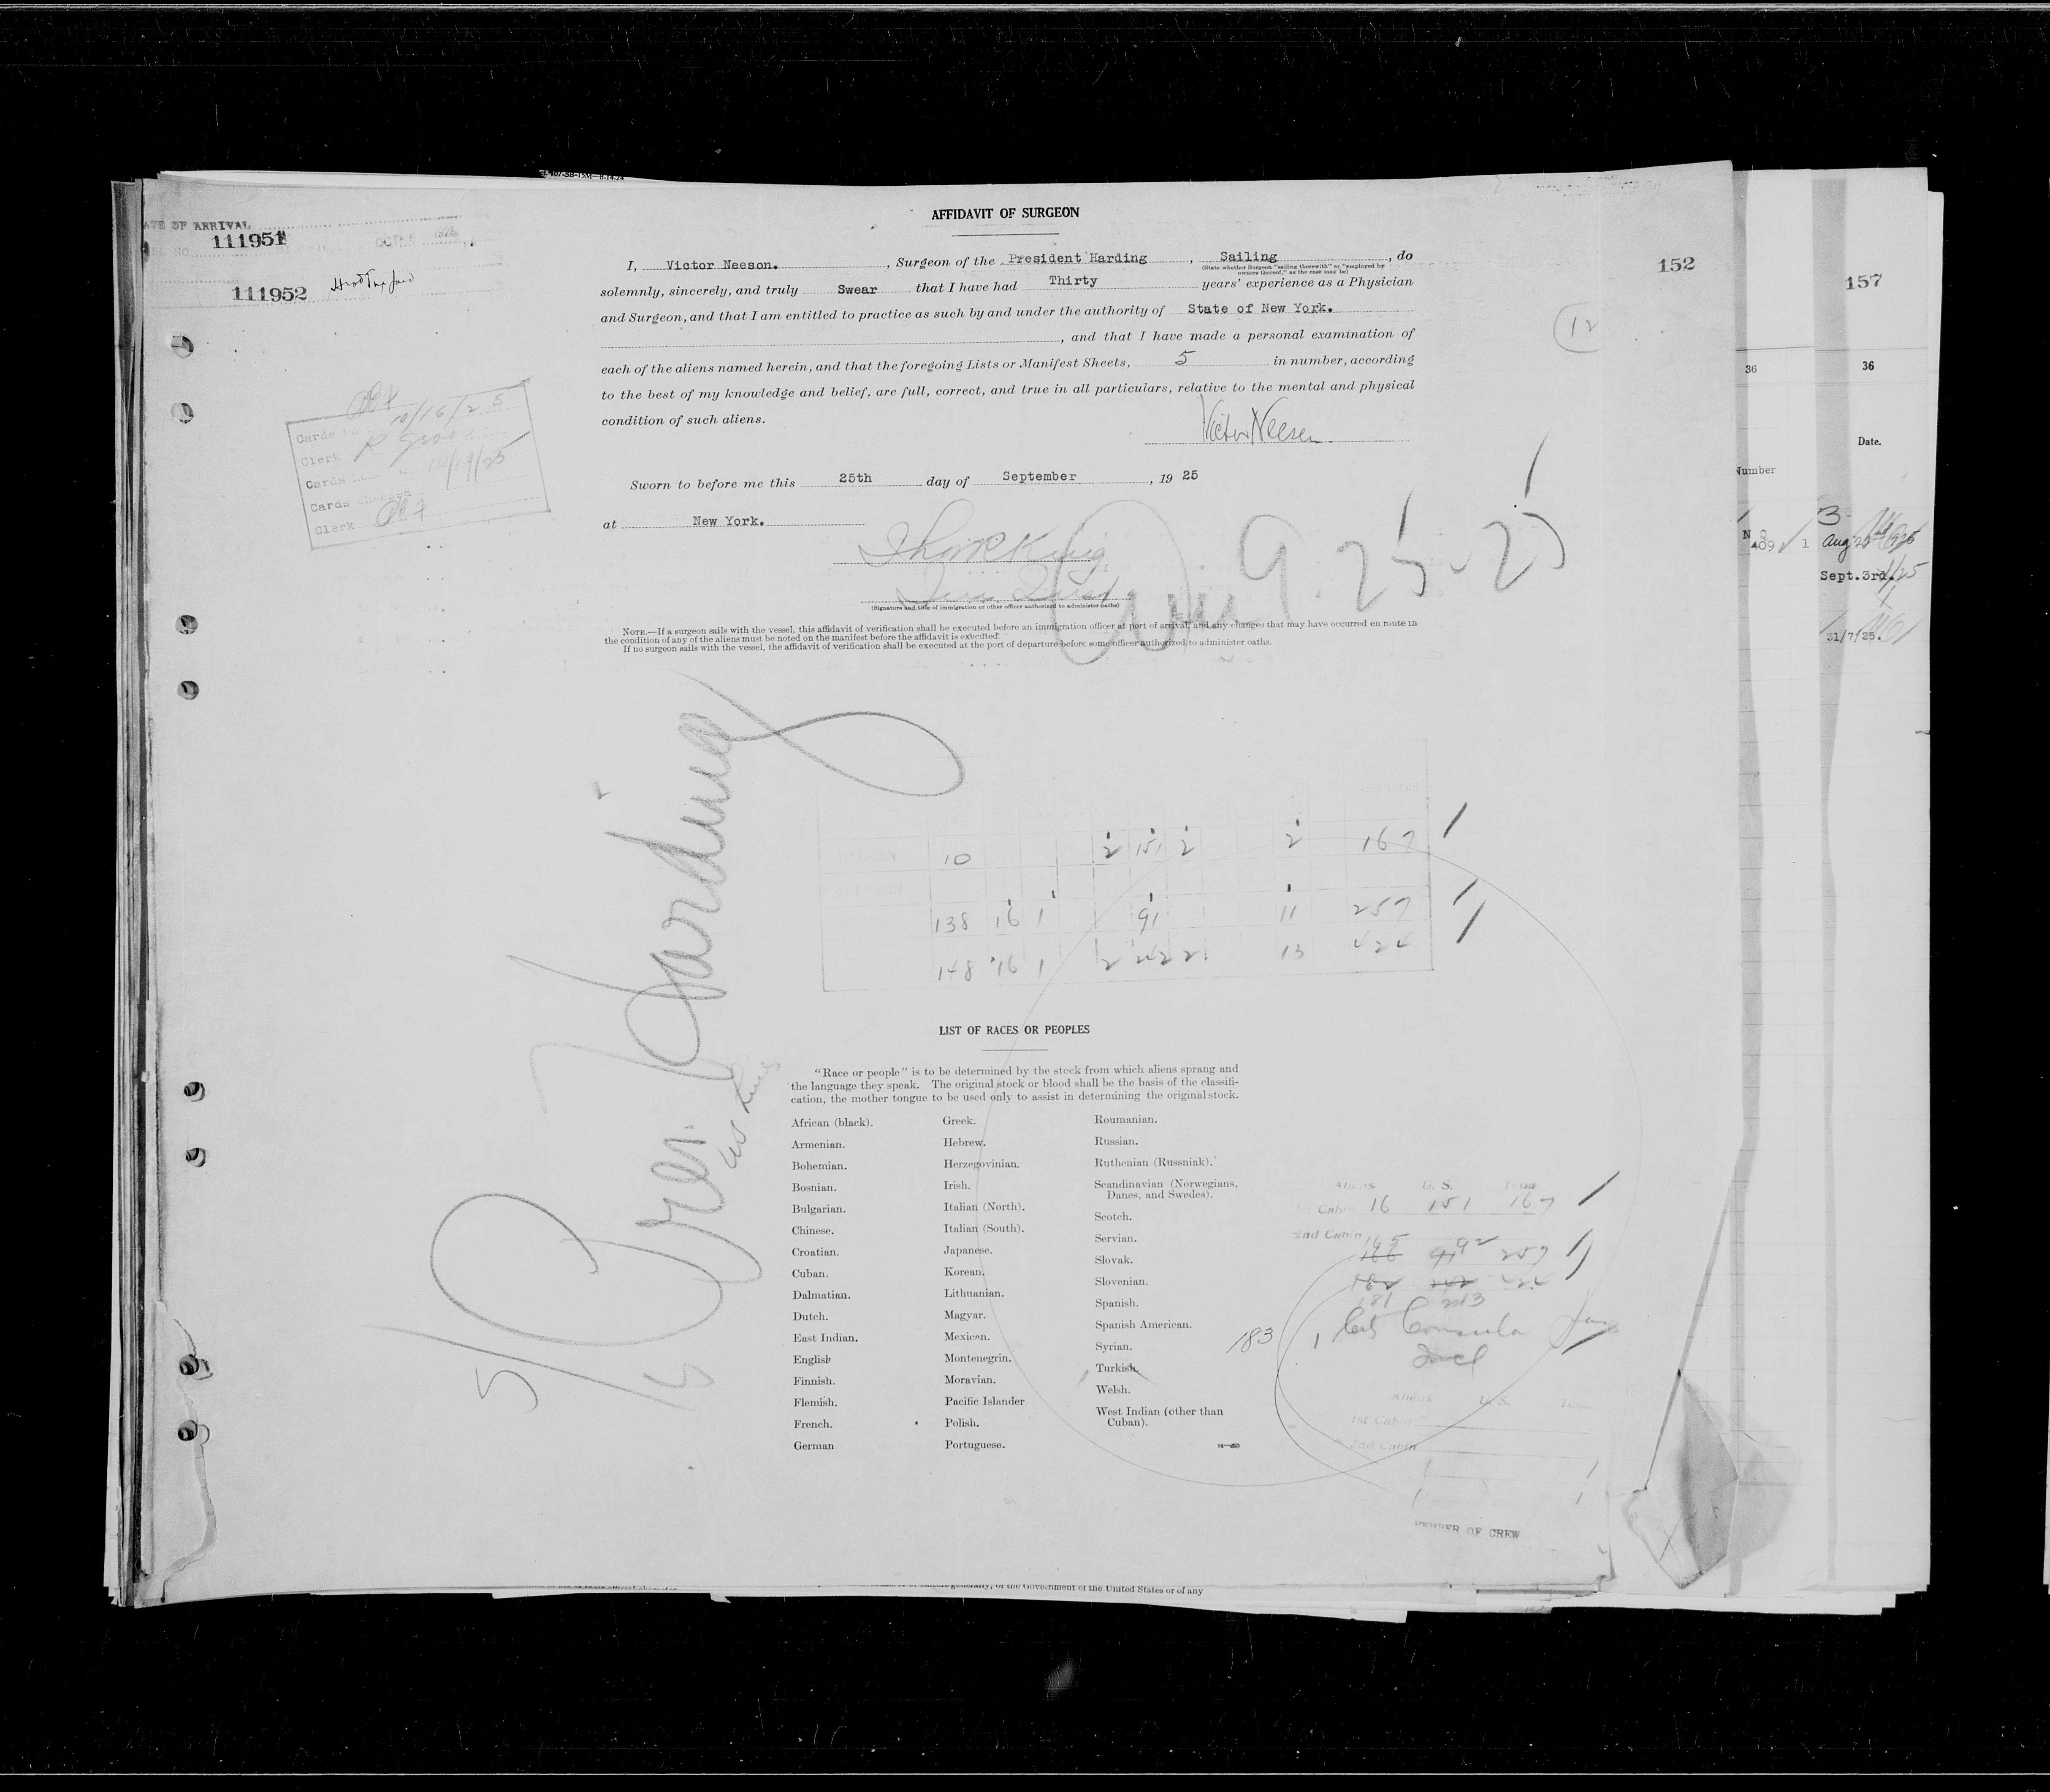 AFFIDAVIT OF SURGEON
ATE OF ARRIVAL
111951
OCT 1925
111952
152
157
12
I, Victor Neeson. , Surgeon of the President Harding , Sailing , do
(State whether Surgeon "sailing therewith" or "employed by
owners thereof," as the case may be)
solemnly, sincerely, and truly Swear that I have had Thirty years' experience as a Physician
and Surgeon, and that I am entitled to practice as such by and under the authority of State of New York.
, and that I have made a personal examination of
each of the aliens named herein, and that the foregoing Lists or Manifest Sheets, 5 in number, according
to the best of my knowledge and belief, are full, correct, and true in all particulars, relative to the mental and physical
condition of such aliens.
Victor Neesen
10/16/25
Cards
Clerk
Cards 10/19/25
Cards
Clerk
Sworn to before me this 25th day of September , 19 25
at New York.
9.25-25
(Signature and title of immigration or other officer authorized to administer oaths)
NOTE.—If a surgeon sails with the vessel, this affidavit of verification shall be executed before an immigration officer at port of arrival, and any changes that may have occurred en route in
the condition of any of the aliens must be noted on the manifest before the affidavit is executed.
If no surgeon sails with the vessel, the affidavit of verification shall be executed at the port of departure before some officer authorized to administer oaths.
36
36
Date.
Number
3
Aug
Sept. 3rd.
31/7/25.
Pres. Harding
10 2 151 2 2 167
138 16 1 91 11 257
148 16 1 2 242 2 13 424
LIST OF RACES OR PEOPLES
"Race or people" is to be determined by the stock from which aliens sprang and
the language they speak. The original stock or blood shall be the basis of the classifi-
cation, the mother tongue to be used only to assist in determining the original stock.
African (black).
Armenian.
Bohemian.
Bosnian.
Bulgarian.
Chinese.
Croatian.
Cuban.
Dalmatian.
Dutch.
East Indian.
English
Finnish.
Flemish.
French.
German
Greek.
Hebrew.
Herzegovinian.
Irish.
Italian (North).
Italian (South).
Japanese.
Korean.
Lithuanian.
Magyar.
Mexican.
Montenegrin.
Moravian.
Pacific Islander
Polish.
Portuguese.
Roumanian.
Russian.
Ruthenian (Russniak).
Scandinavian (Norwegians,
Danes, and Swedes).
Scotch.
Servian.
Slovak.
Slovenian.
Spanish.
Spanish American.
Syrian.
Turkish.
Welsh.
West Indian (other than
Cuban).
Aliens U. S. Total
Cabin 16 151 167
2nd Cabin 165 92 257
166 91
182 242 424
181 243
183
Aliens U.S. Total
1st Cabin
2nd Cabin
MEMBER OF CREW
generally, of the Government of the United States or of any